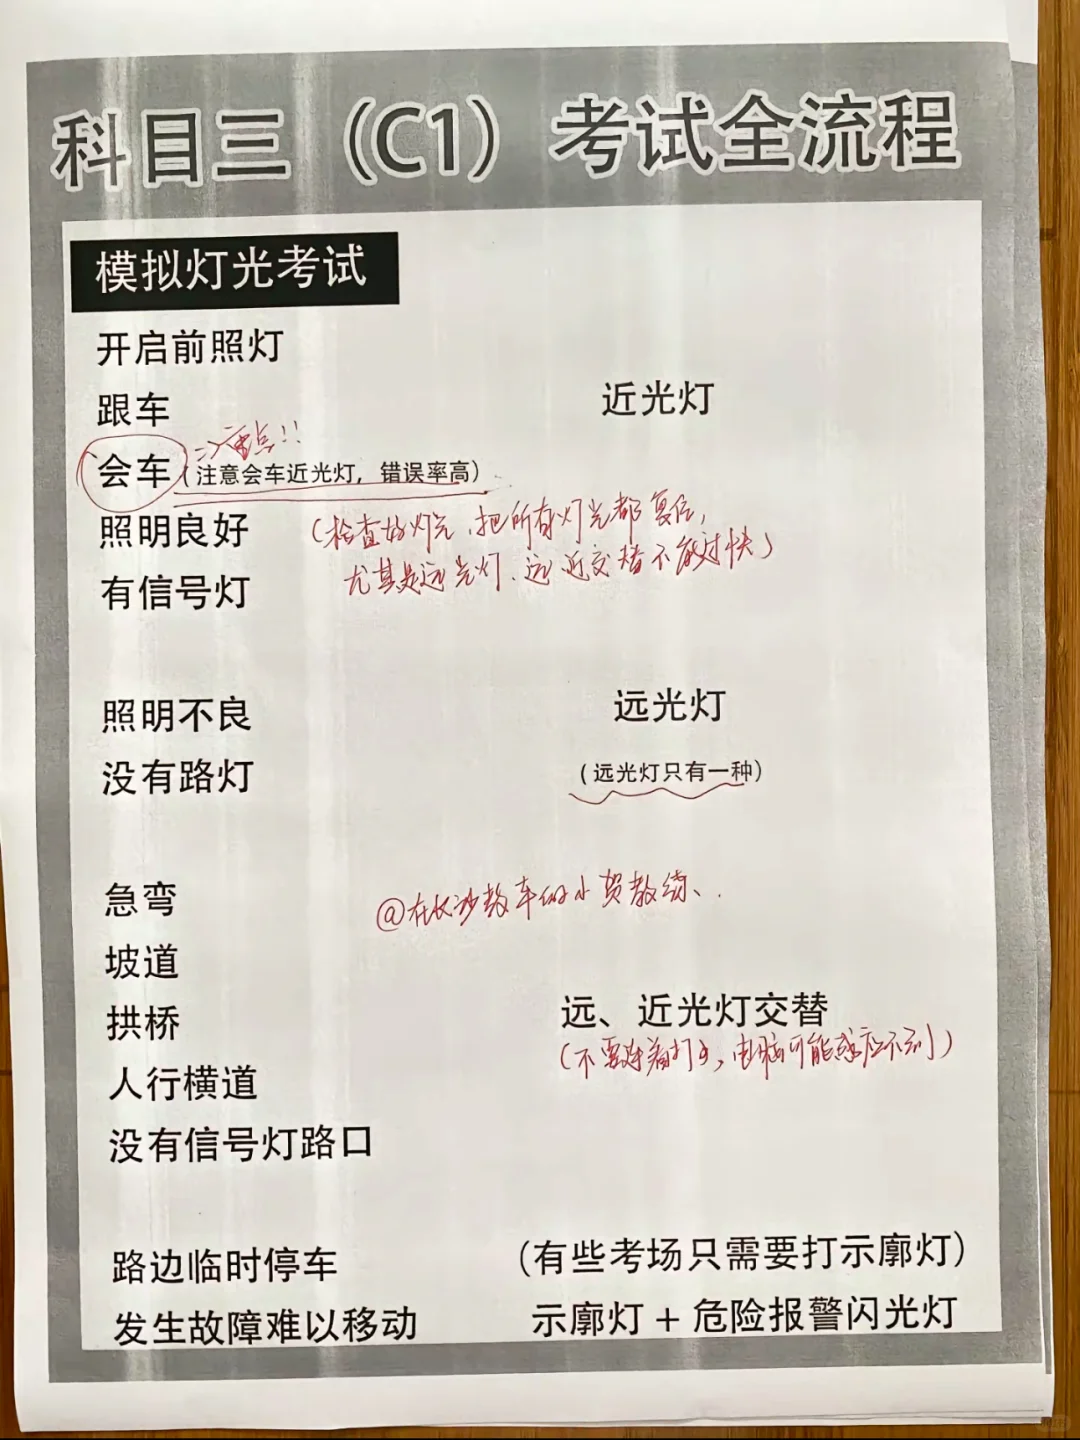 科目三（C1）考试全流程
模拟灯光考试
开启前照灯
跟车
近光灯
=>重点!!
会车（注意会车近光灯，错误率高）
照明良好
（检查好灯光，把所有灯光都复位，
尤其是远光灯、远近交替不能过快）
有信号灯
照明不良
远光灯
没有路灯
（远光灯只有一种）
急弯
@在长沙教车的小贺教练、.
坡道
拱桥
远、近光灯交替
（不要连着打，电脑可能感应不到）
人行横道
没有信号灯路口
路边临时停车
（有些考场只需要打示廓灯）
发生故障难以移动
示廓灯＋危险报警闪光灯